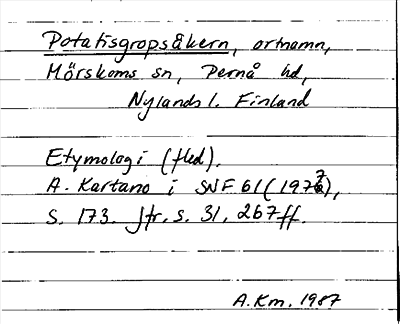 Potatisgropsåkern, ortnamn,
Mörskoms sn, Pernå hd,
Nylands l. Finland
Etymologi (fled).
A. Kartano i SNF 61 (1977),
s. 173. Jfr. s. 31, 267 ff.
A.Km. 1987